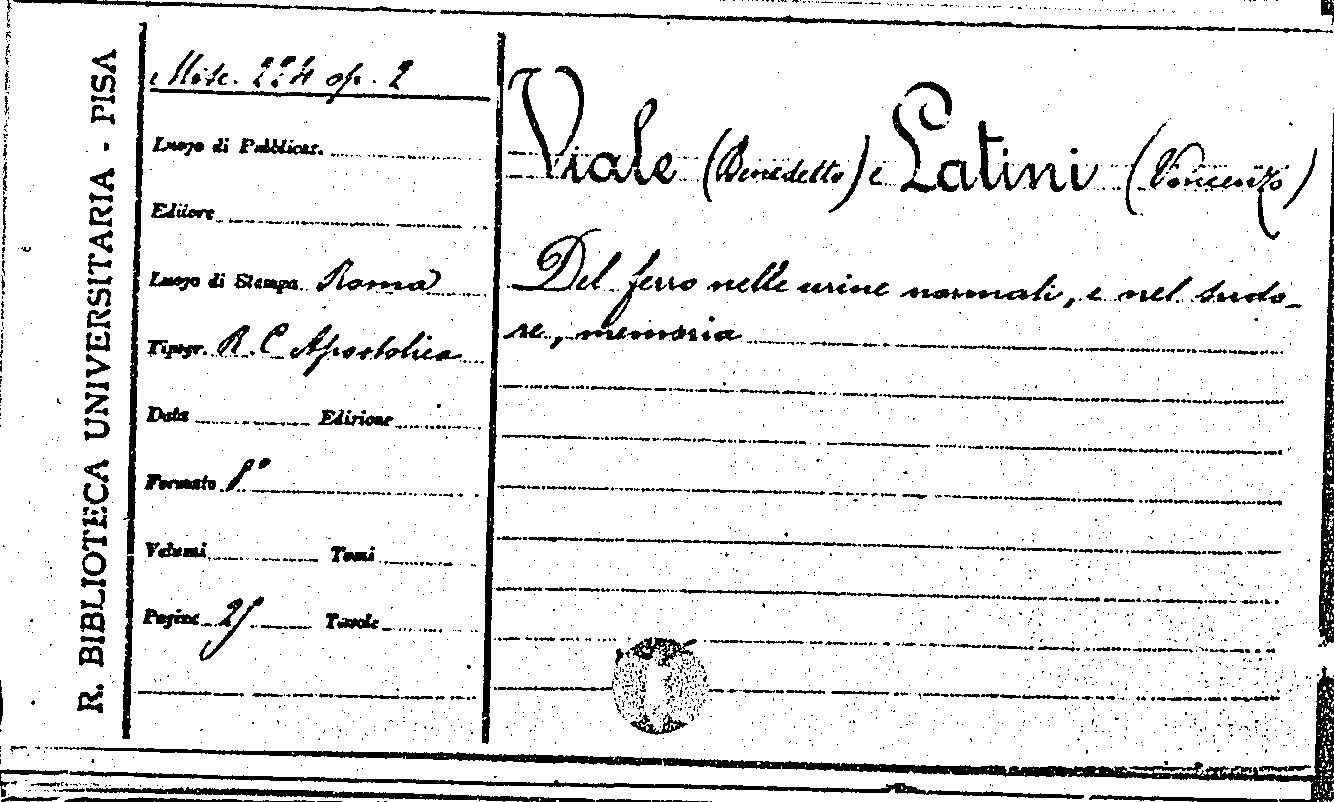 R. BIBLIOTECA UNIVERSITARIA - PISA
Misc. 224 op. 2
Luogo di Pubblicaz.
Editore
Luogo di Stampa Roma
Tipogr. R. C Apostolica
Data Edizione
Formato 8°
Volumi Tomi
Pagine Tavole
Viale (Benedetto) e Latini (Vincenzo)
Del ferro nelle urine normali, e nel sudo-
re, memoria